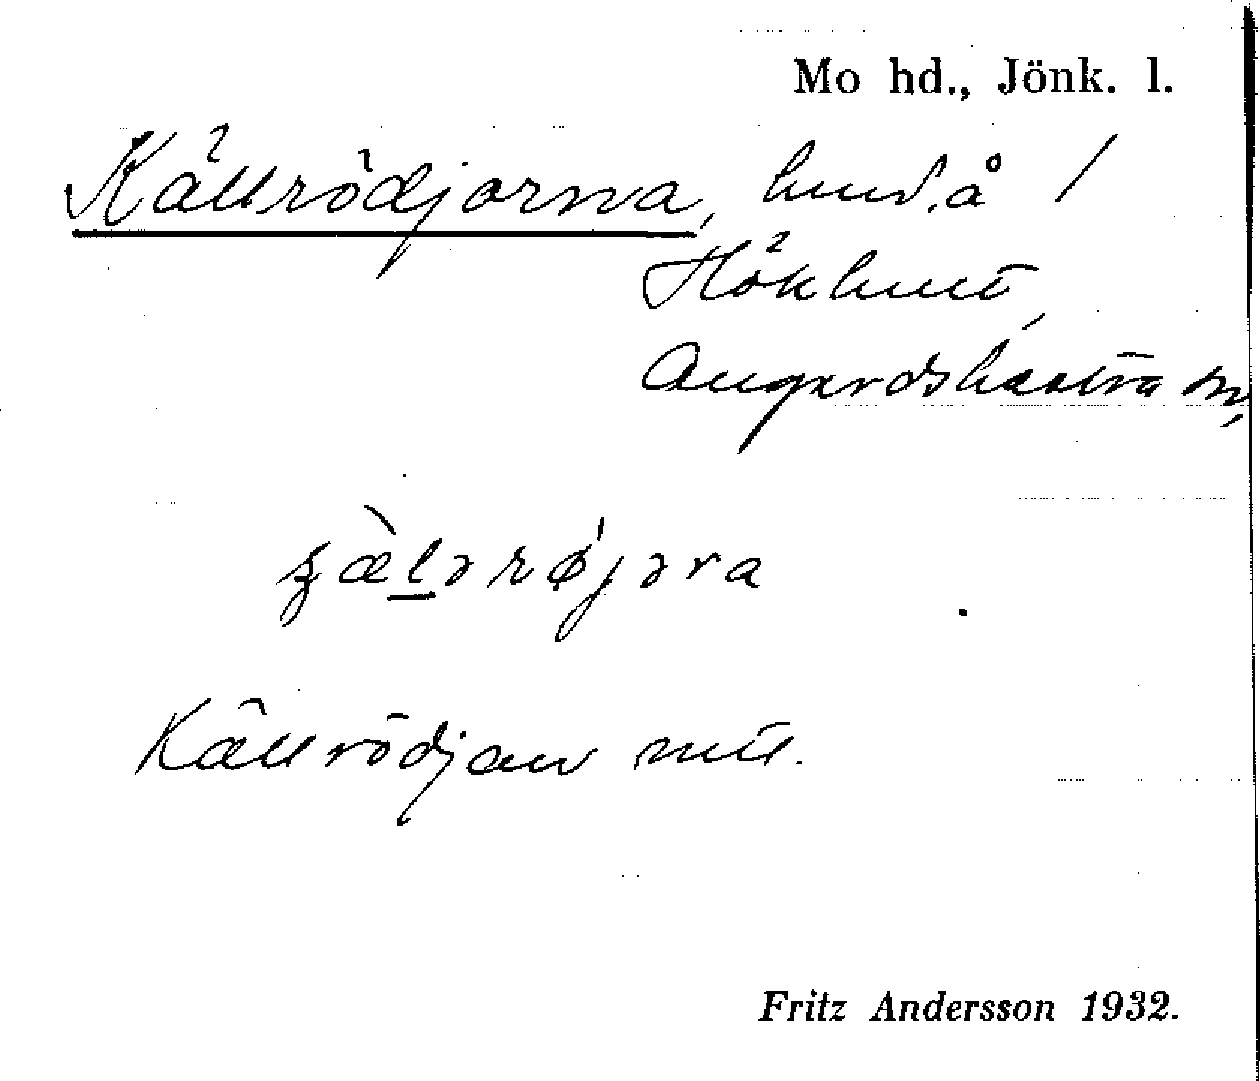 Mo hd., Jönk. l.
Källrödjorna, hmd, å 1
Hökhult,
Angerdshestra sn,
Källrödjan mtl.
Fritz Andersson 1932.